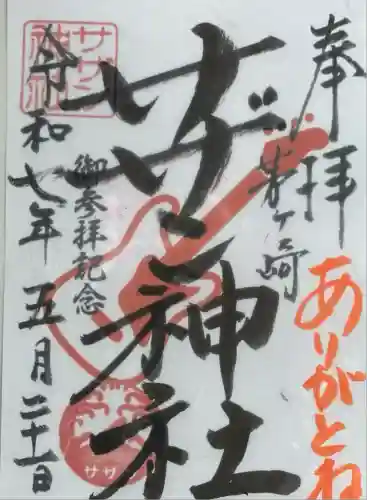 奉拝
ありがとね
茅ヶ崎
サザン神社
御参拝記念
令和七年五月二十一日
サザン
神社
ササ